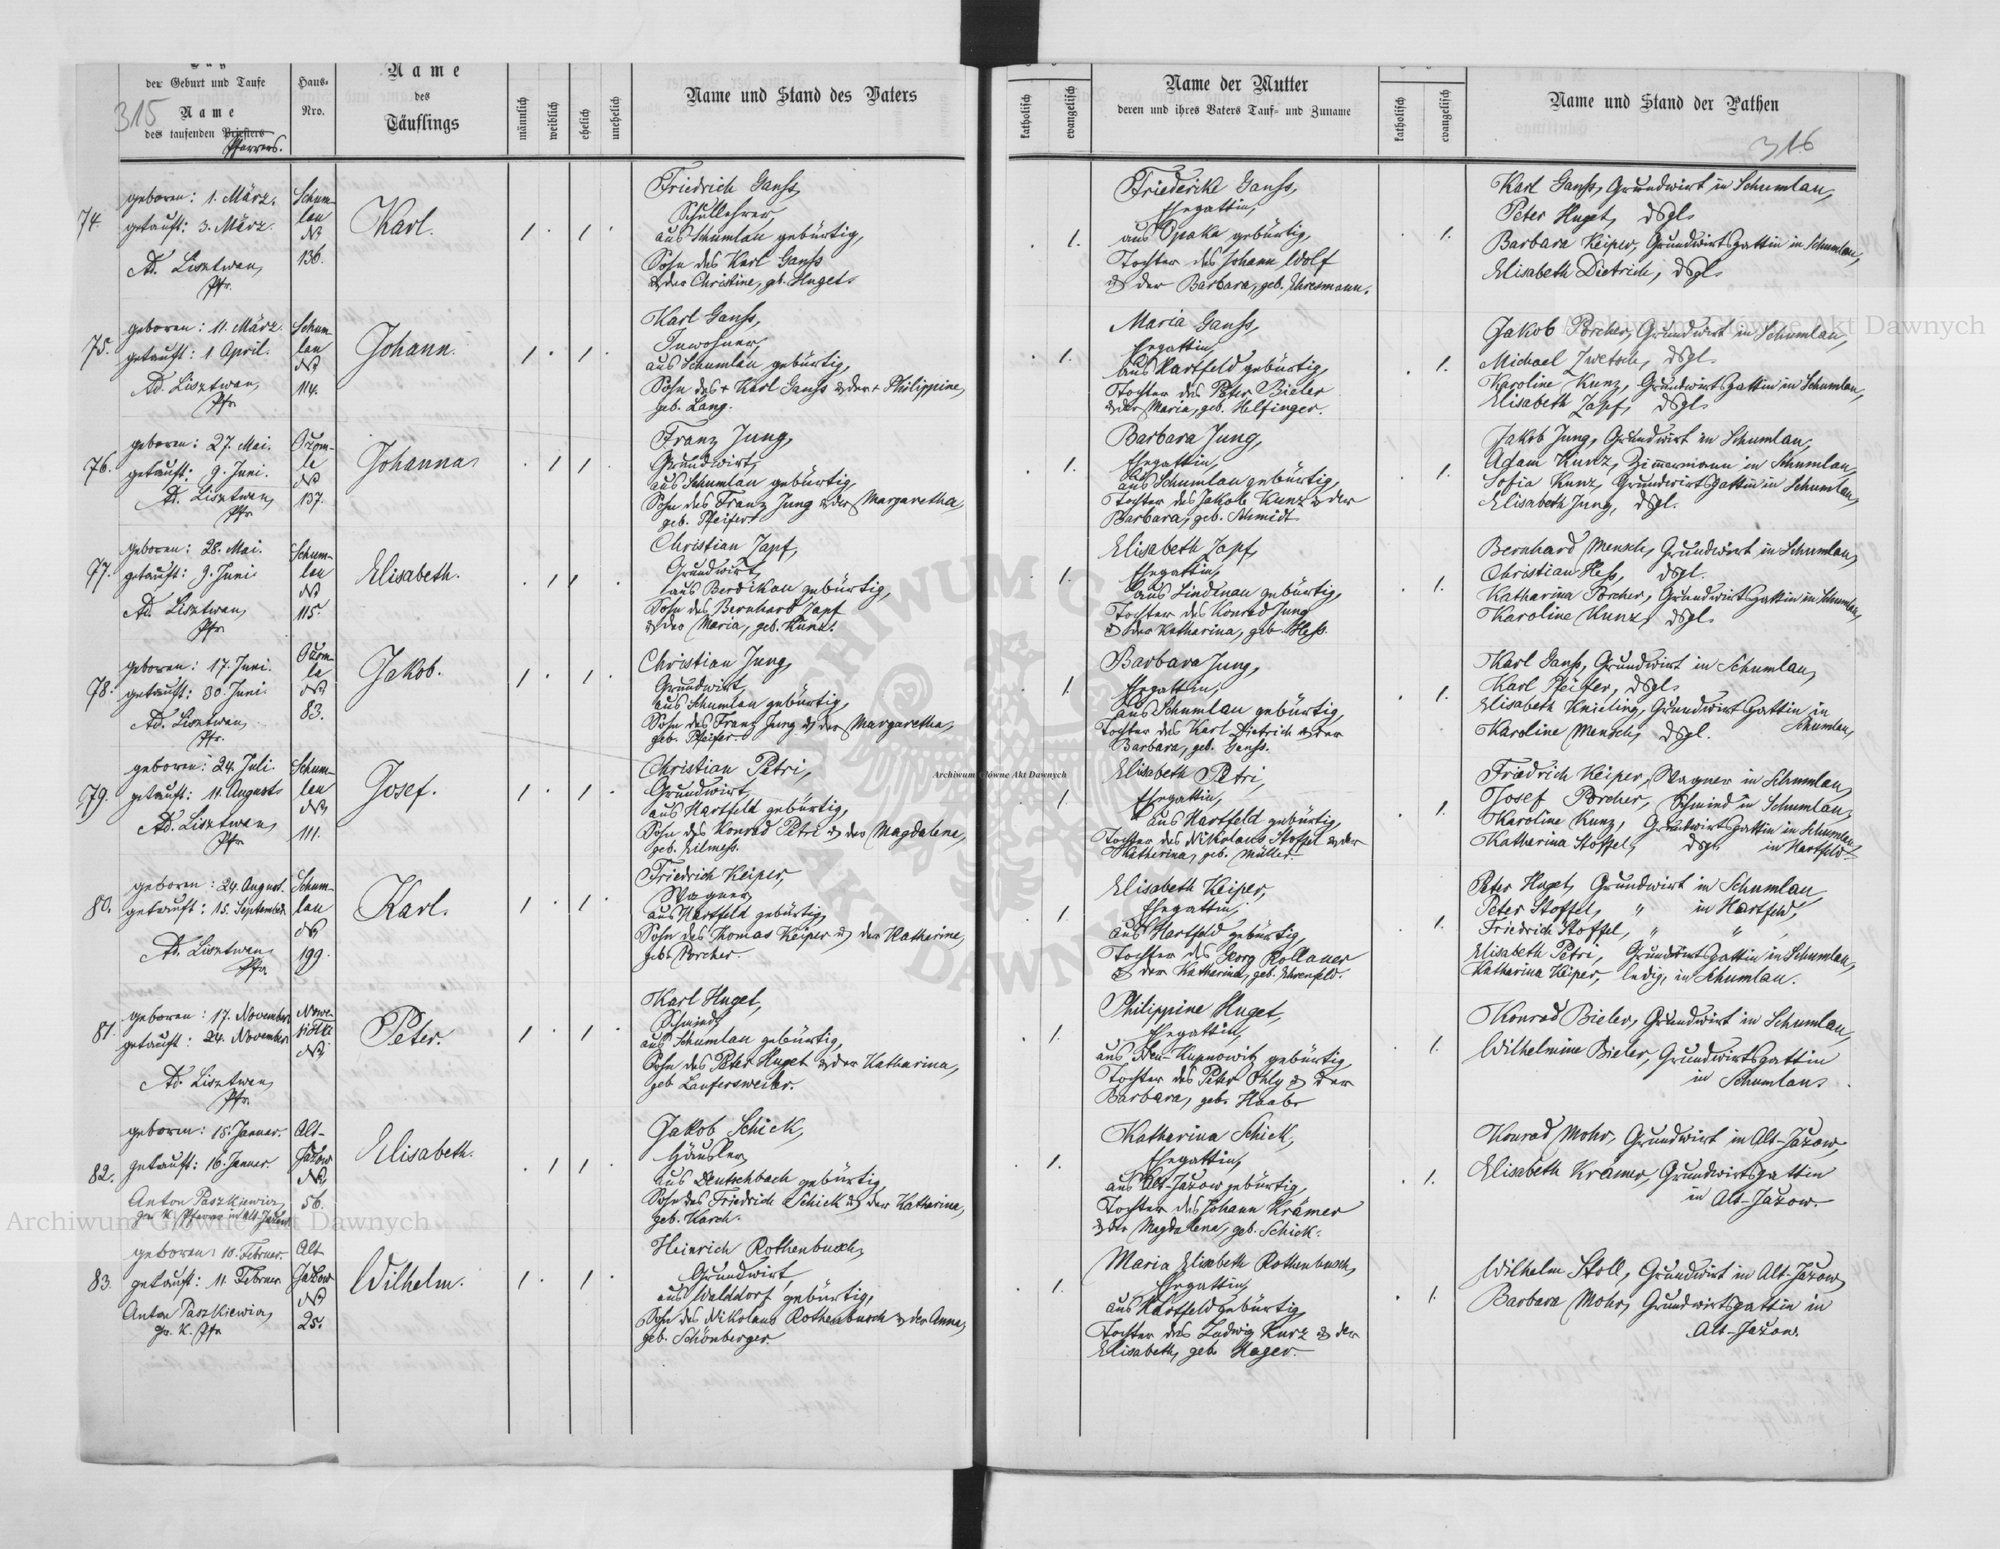 315
der Geburt und Taufe
Name
des taufenden Priesters
Pfarrers.
Haus-
Nro.
Name
des
Täuflings
männlich
weiblich
ehelich
unehelich
Name und Stand des Vaters
katholisch
evangelisch
Name der Mutter
deren und ihres Vaters Tauf- und Zuname
katholisch
evangelisch
Name und Stand der Pathen
316
74.
geboren: 1. März.
getauft: 3. März.
Ad. Lisztwan,
Pfr.
Schum-
lau
No
136.
Karl.
1 . 1 .
Friedrich Ganss,
Schullehrer,
aus Schumlau gebürtig,
Sohn des Karl Ganss
u. der Christine, gb. Huget.
. 1.
Friederike Ganss,
Ehegattin,
aus Opaka gebürtig,
Tochter des Johann Wolf
u. der Barbara, geb. Ehresmann.
. 1.
Karl Ganss, Grundwirt in Schumlau,
Peter Huget, dsgl.
Barbara Keiper, Grundwirtsgattin in Schumlau,
Elisabeth Dietrich, dsgl.
75.
geboren: 11. März.
getauft: 1. April.
Ad. Lisztwan,
Pfr.
Schum-
lau
No
114.
Johann.
1 . 1 .
Karl Ganss,
Inwohner,
aus Schumlau gebürtig,
Sohn des + Karl Ganss u. der + Philippine,
geb. Lang.
. 1.
Maria Ganss,
Ehegattin,
aus Hartfeld gebürtig,
Tochter des Peter Bieler
u. der Maria, geb. Helfinger.
. 1.
Jakob Porcher, Grundwirt in Schumlau,
Michael Zwetsch, dsgl.
Karoline Kunz, Grundwirtsgattin in Schumlau,
Elisabeth Zapf, dsgl.
76.
geboren: 27. Mai.
getauft: 9. Juni.
Ad. Lisztwan,
Pfr.
No
137.
Johanna.
. 1 1 .
Franz Jung,
Grundwirt,
aus Schumlau gebürtig,
Sohn des Franz Jung u. der Margaretha,
geb. Pfeifer.
. 1.
Barbara Jung,
Ehegattin,
aus Schumlau gebürtig,
Tochter des Jakob Kunz u. der
Barbara, geb. Schmidt
. 1.
Jakob Jung, Grundwirt in Schumlau,
Adam Kunz, Zimmermann in Schumlau,
Sofia Kunz, Grundwirtsgattin in Schumlau,
Elisabeth Jung, dsgl.
77.
geboren: 28. Mai.
getauft: 9. Juni
Ad. Lisztwan,
Pfr.
Schum-
lau
No
115.
Elisabeth.
. 1 1 .
Christian Zapf,
Grundwirt,
aus Berdikau gebürtig,
Sohn des Bernhard Zapf
u. der Maria, geb. Kunz.
. 1.
Elisabeth Zapf,
Ehegattin,
aus Lindenau gebürtig,
Tochter des Konrad Jung
u. der Katharina, geb. Hess.
. 1.
Bernhard Mensch, Grundwirt in Schumlau,
Christian Hess, dsgl.
Katharina Porcher, Grundwirtsgattin in Schumlau,
Karoline Kunz, dsgl.
78.
geboren: 17. Juni.
getauft: 30. Juni.
Ad. Lisztwan,
Pfr.
No
83.
Jakob.
1 . 1 .
Christian Jung,
Grundwirt,
aus Schumlau gebürtig,
Sohn des Franz Jung u. der Margaretha,
geb. Pfeifer.
. 1.
Barbara Jung,
Ehegattin,
aus Schumlau gebürtig,
Tochter des Karl Dietrich u. der
Barbara, geb. Ganss.
. 1.
Karl Ganss, Grundwirt in Schumlau,
Karl Pfeifer, dsgl.
Elisabeth Knieling, Grundwirtsgattin in
Schumlau,
Karoline Mensch, dsgl.
79.
geboren: 24. Juli.
getauft: 11. August.
Ad. Lisztwan,
Pfr.
Schum-
lau
No
111.
Josef.
1 . 1 .
Christian Petri,
Grundwirt,
aus Hartfeld gebürtig,
Sohn des Konrad Petri u. der Magdalene,
geb. Eilmess.
. 1
Elisabeth Petri,
Ehegattin,
aus Hartfeld gebürtig,
Tochter des Nikolaus Stoffel u. der
Katherina, geb. Müller.
. 1.
Friedrich Keiper, Wagner in Schumlau,
Josef Porcher, Schmied in Schumlau,
Karoline Kunz, Grundwirtsgattin in Schumlau,
Katharina Stoffel, dsgl. in Hartfeld.
80.
geboren: 24. August.
getauft: 15. September.
Ad. Lisztwan,
Pfr.
Schum-
lau
No
199.
Karl.
1 . 1 .
Friedrich Keiper,
Wagner,
aus Hartfeld gebürtig,
Sohn des Thomas Keiper u. der Katharine,
geb. Porcher.
. 1
Elisabeth Keiper,
Ehegattin,
aus Hartfeld gebürtig,
Tochter des Georg Rollauer
u. der Katharina, geb. Ehrenfeld.
. 1.
Peter Huget, Grundwirt in Schumlau,
Peter Stoffel, " in Hartfeld,
Friedrich Stoffel, " "
Elisabeth Petri, Grundwirtsgattin in Schumlau,
Katharina Keiper, ledig, in Schumlau.
81.
geboren: 17. November
getauft: 24. November
Ad. Lisztwan,
Pfr.
Nowe-
siolki
No
Peter.
1 . 1 .
Karl Huget,
Schmied,
aus Schumlau gebürtig,
Sohn des Peter Huget u. der Katharina,
geb. Laufersweiler.
. 1.
Philippine Huget,
Ehegattin,
aus Neu-Kupnowitz gebürtig,
Tochter des Peter Ohly u. der
Barbara, geb. Haab.
. 1.
Konrad Bieler, Grundwirt in Schumlau,
Wilhelmine Bieler, Grundwirtsgattin
in Schumlau.
82.
geboren: 15. Jänner.
getauft: 16. Jänner.
Anton Paszkiewicz
gr. k. Pfarrer in Alt-Jazow
Alt-
Jazow
No
56.
Elisabeth.
. 1 1 .
Jakob Schick,
Häusler,
aus Deutschbach gebürtig,
Sohn des Friedrich Schick u. der Katharina,
geb. Karch.
. 1.
Katharina Schick,
Ehegattin,
aus Alt-Jazow gebürtig,
Tochter des Johann Krämer
u. der Magdalena, geb. Schick.
. 1.
Konrad Mohr, Grundwirt in Alt-Jazow,
Elisabeth Krämer, Grundwirtsgattin
in Alt-Jazow.
83.
geboren: 10. Februar.
getauft: 11. Februar
Anton Paszkiewicz,
gr. k. Pfr.
Alt
Jazow
No
25.
Wilhelm.
1 . 1 .
Heinrich Rothenbusch,
Grundwirt,
aus Walddorf gebürtig,
Sohn des Nikolaus Rothenbusch u. der Anna,
geb. Schönberger.
. 1.
Maria Elisabeth Rothenbusch,
Ehegattin,
aus Hartfeld gebürtig,
Tochter des Ludwig Kurz u. der
Elisabeth, geb. Hager.
. 1.
Wilhelm Stoll, Grundwirt in Alt-Jazow,
Barbara Mohr, Grundwirtsgattin in
Alt-Jazow.
Archiwum Główne Akt Dawnych
Archiwum Główne Akt Dawnych
Archiwum Główne Akt Dawnych
ARCHIWUM GŁÓWNE AKT DAWNYCH